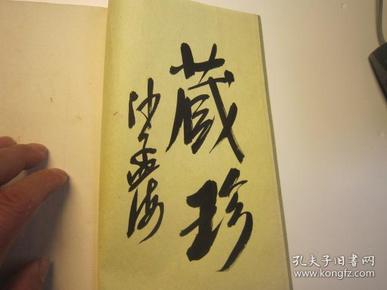 蔵珍
沙孟海
孔夫子旧书网
www.kongfz.com